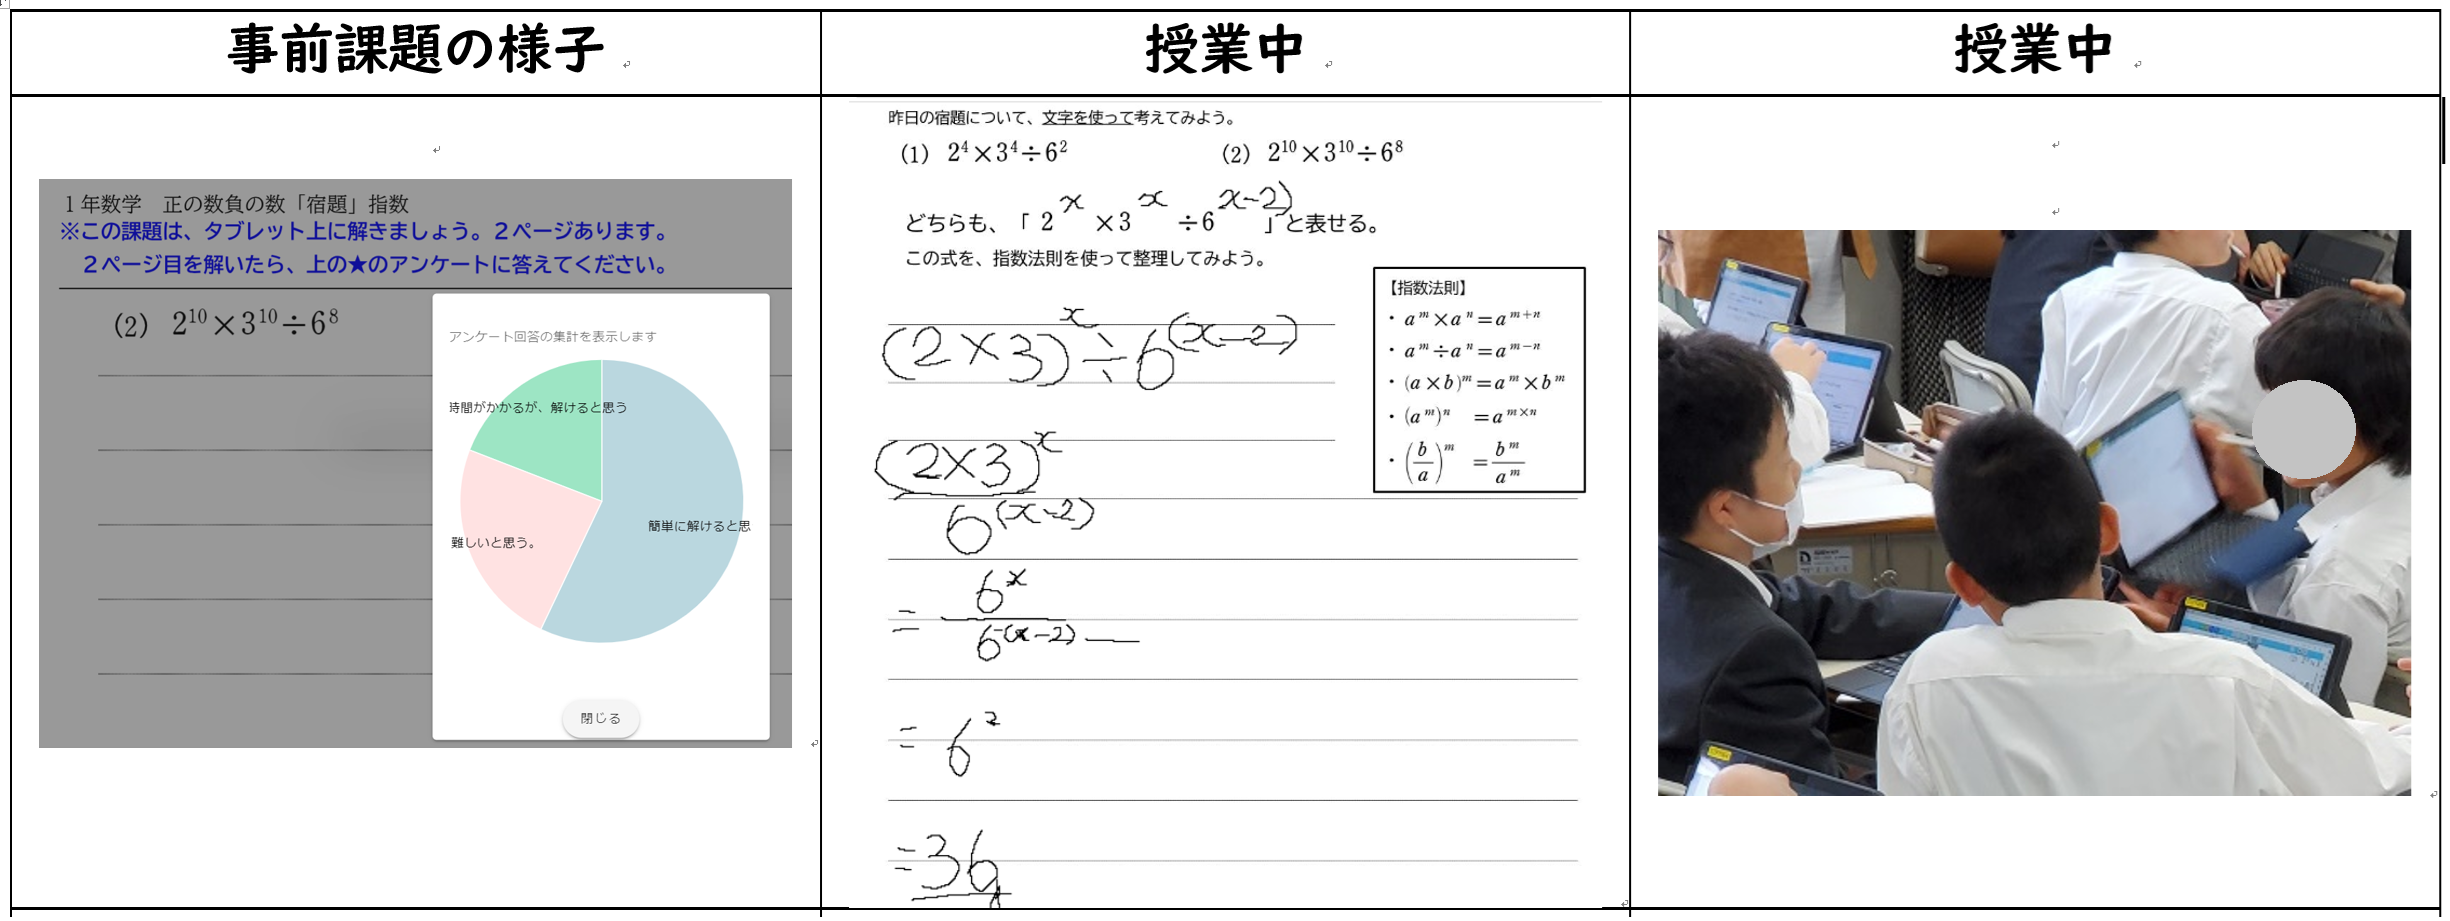 事前課題の様子
授業中
授業中
1年数学　正の数負の数「宿題」指数
※この課題は、タブレット上に解きましょう。2ページあります。
2ページ目を解いたら、上の★のアンケートに答えてください。
(2) 2¹⁰×3¹⁰÷6⁸
アンケート回答の集計を表示します
時間がかかるが、解けると思う
簡単に解けると思
難しいと思う。
閉じる
昨日の宿題について、文字を使って考えてみよう。
(1) 2⁴×3⁴÷6²
(2) 2¹⁰×3¹⁰÷6⁸
どちらも、「2^x×3^x÷6^(x-2)」と表せる。
この式を、指数法則を使って整理してみよう。
【指数法則】
・a^m×a^n=a^(m+n)
・a^m÷a^n=a^(m-n)
・(a×b)^m=a^m×b^m
・(a^m)^n=a^(m×n)
・(b/a)^m=b^m/a^m
(2×3)^x÷6^(x-2)
(2×3)^x/6^(x-2)
=6^x/6^(x-2)
=6²
=36